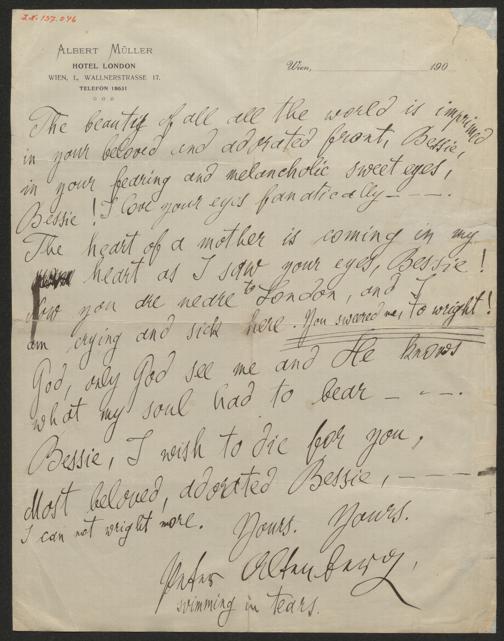 I.N. 137.046
ALBERT MÜLLER
HOTEL LONDON
WIEN, I., WALLNERSTRASSE 17.
TELEFON 18631
Wien, 190
The beauty of all all the world is imprimed
in your beloved and adorated front, Bessie,
in your fearing and melancholic sweet eyes,
Bessie! I love your eyes fanatically — — —.
The heart of a mother is coming in my
heart as I saw your eyes, Bessie!
Now you are neare to London, and I
am crying and sick here. You sweared me, to wright!
God, only God see me and He knows
what my soul had to bear — — —.
Bessie, I wish to die for you,
Most beloved, adorated Bessie, — — —
I can not wright more. Yours. Yours.
Peter Altenberg,
swimming in tears.